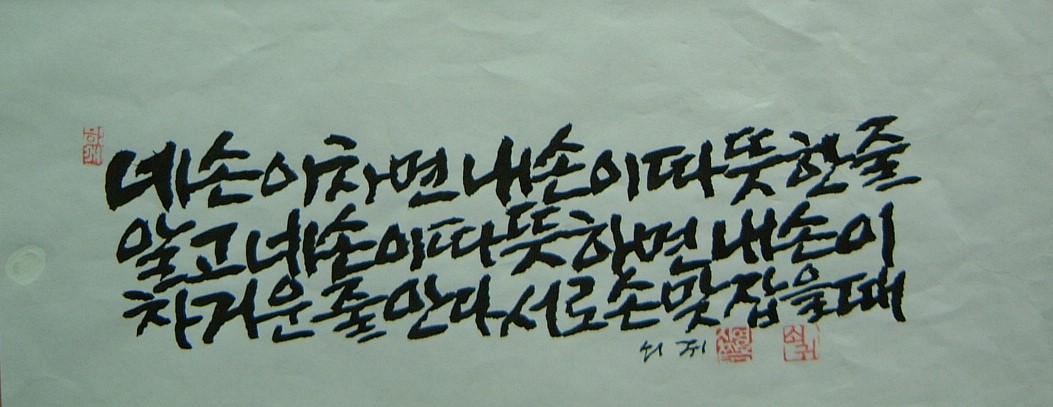 네손이차면내손이따뜻한줄
알고네손이따뜻하면내손이
차거운줄안다서로손맞잡을때
쇠귀